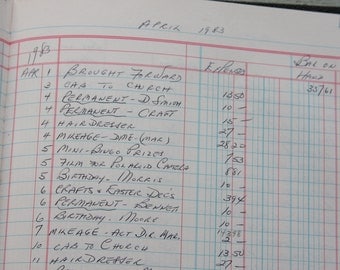 APRIL 1983
1983 EXPENSES BAL ON HAND
APR. 1 BROUGHT FORWARD 357 61
3 CAB TO CHURCH 13 50
4 PERMANENT - D SMITH 10 —
4 PERMANENT - CRAFT 15 —
4 HAIRDRESSER 27 —
4 MILEAGE - DME (MAR) 28 20
5 MINI-BINGO PRIZES 7 53
5 FILM FOR POLAROID CAMERA 8 81
5 BIRTHDAY - MORRIS 10 —
6 CRAFTS & EASTER DEC'S 3 94
6 PERMANENT - BENNER 10 —
6 BIRTHDAY - MOORE 10 —
7 MILEAGE - ACT DIR MAR.
10 CAB TO CHURCH 13 50
11 HAIRDRESSER 27 —